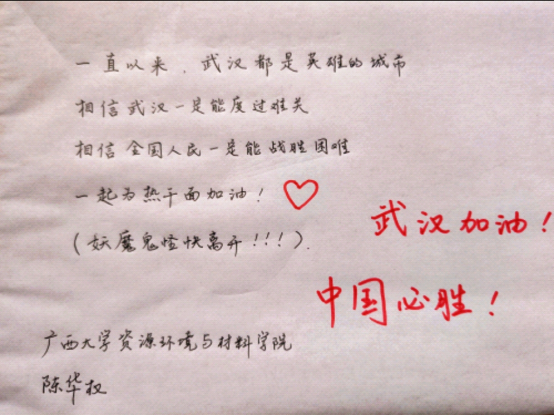 一直以来，武汉都是英雄的城市
相信武汉一定能度过难关
相信全国人民一定能战胜困难
一起为热干面加油！
（妖魔鬼怪快离开！！！）.
武汉加油！
中国必胜！
广西大学资源环境与材料学院
陈华权